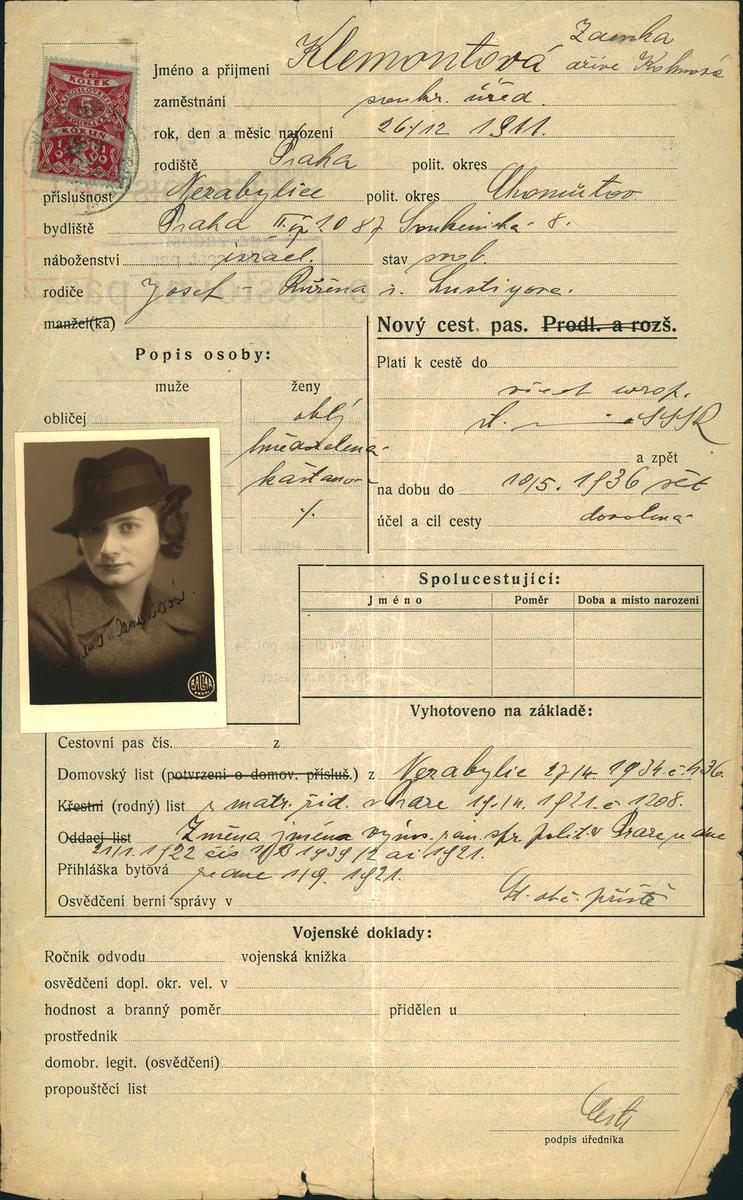 KOLEK
5
KORUN
Zdenka
Jméno a příjmení Klemontová dříve Kohnová
zaměstnání soukr. úřed.
rok, den a měsíc narození 26/12 1911.
rodiště Praha polit. okres
příslušnost Nezabylice polit. okres Chomutov
bydliště Praha II. čp 1087 Soukenická 8.
náboženství israel. stav svob.
rodiče Josef - Růžena r. Lustigova.
manžel(ka)
Nový cest. pas. Prodl. a rozš.
Popis osoby:
Platí k cestě do
muže ženy
všech evrop.
obličej oblý
st. SSSR
hnědozelená
a zpět
kaštanov
na dobu do 10/5. 1936 pět
./.
účel a cíl cesty dovolená
Spolucestující:
Jméno Poměr Doba a místo narození
BALZAR
Vyhotoveno na základě:
Cestovní pas čís. z
Domovský list (potvrzení o domov. přísluš.) z Nezabylic 27/4. 1934. č. 436.
Křestní (rodný) list z matr. žid. v Praze 19./4. 1921. č 1208.
Oddací list Změna jména výnos. zem. spr. polit. v Praze ze dne
21/1. 1922 čís 1939/2 ai 1921.
Přihláška bytová ze dne 1/9. 1921.
Osvědčení berní správy v St. obč. příště
Vojenské doklady:
Ročník odvodu vojenská knížka
osvědčení dopl. okr. vel. v
hodnost a branný poměr přidělen u
prostředník
domobr. legit. (osvědčení)
propouštěcí list
podpis úředníka